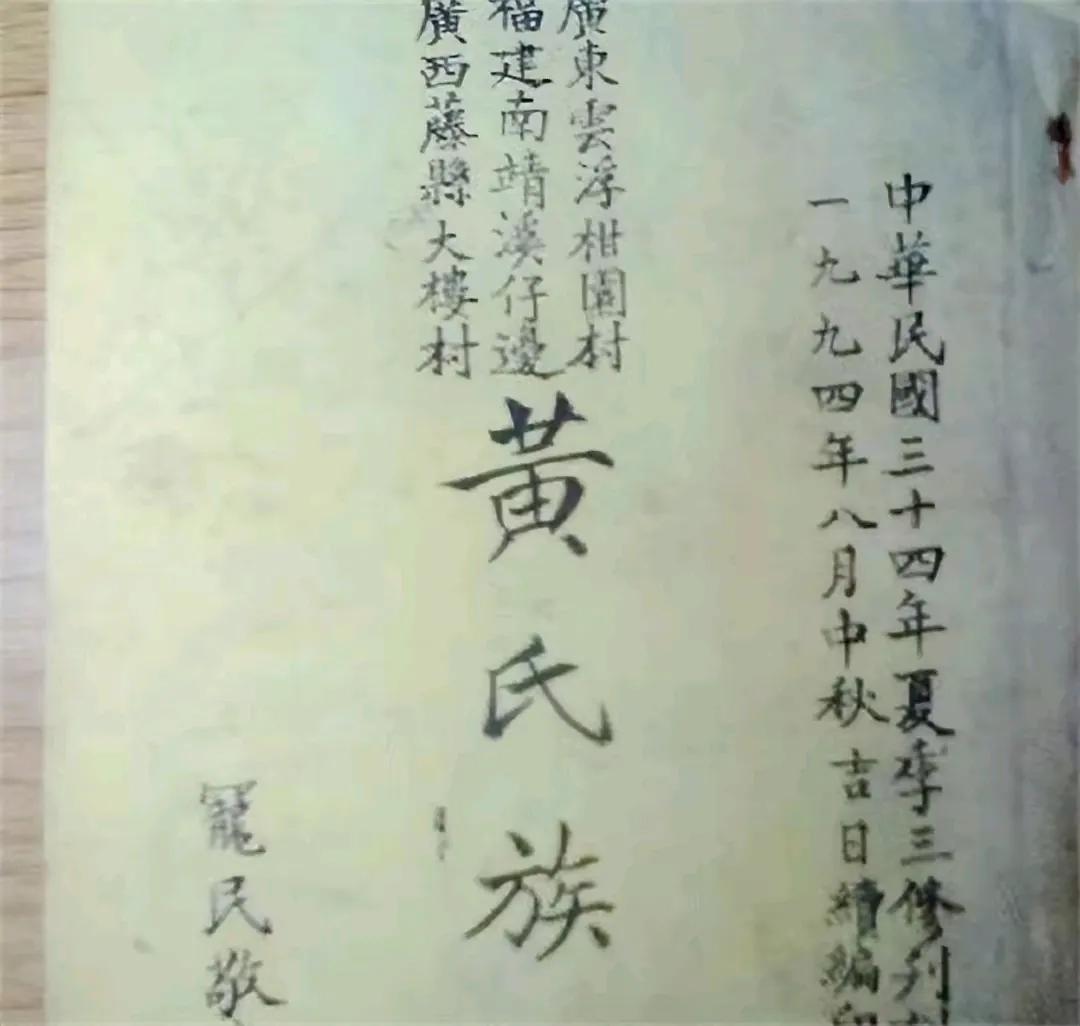 中華民國三十四年夏季三修刊
一九九四年八月中秋吉日續編印
廣東雲浮柑園村
福建南靖溪仔邊
廣西藤縣大樓村
黃氏族
寵民敬